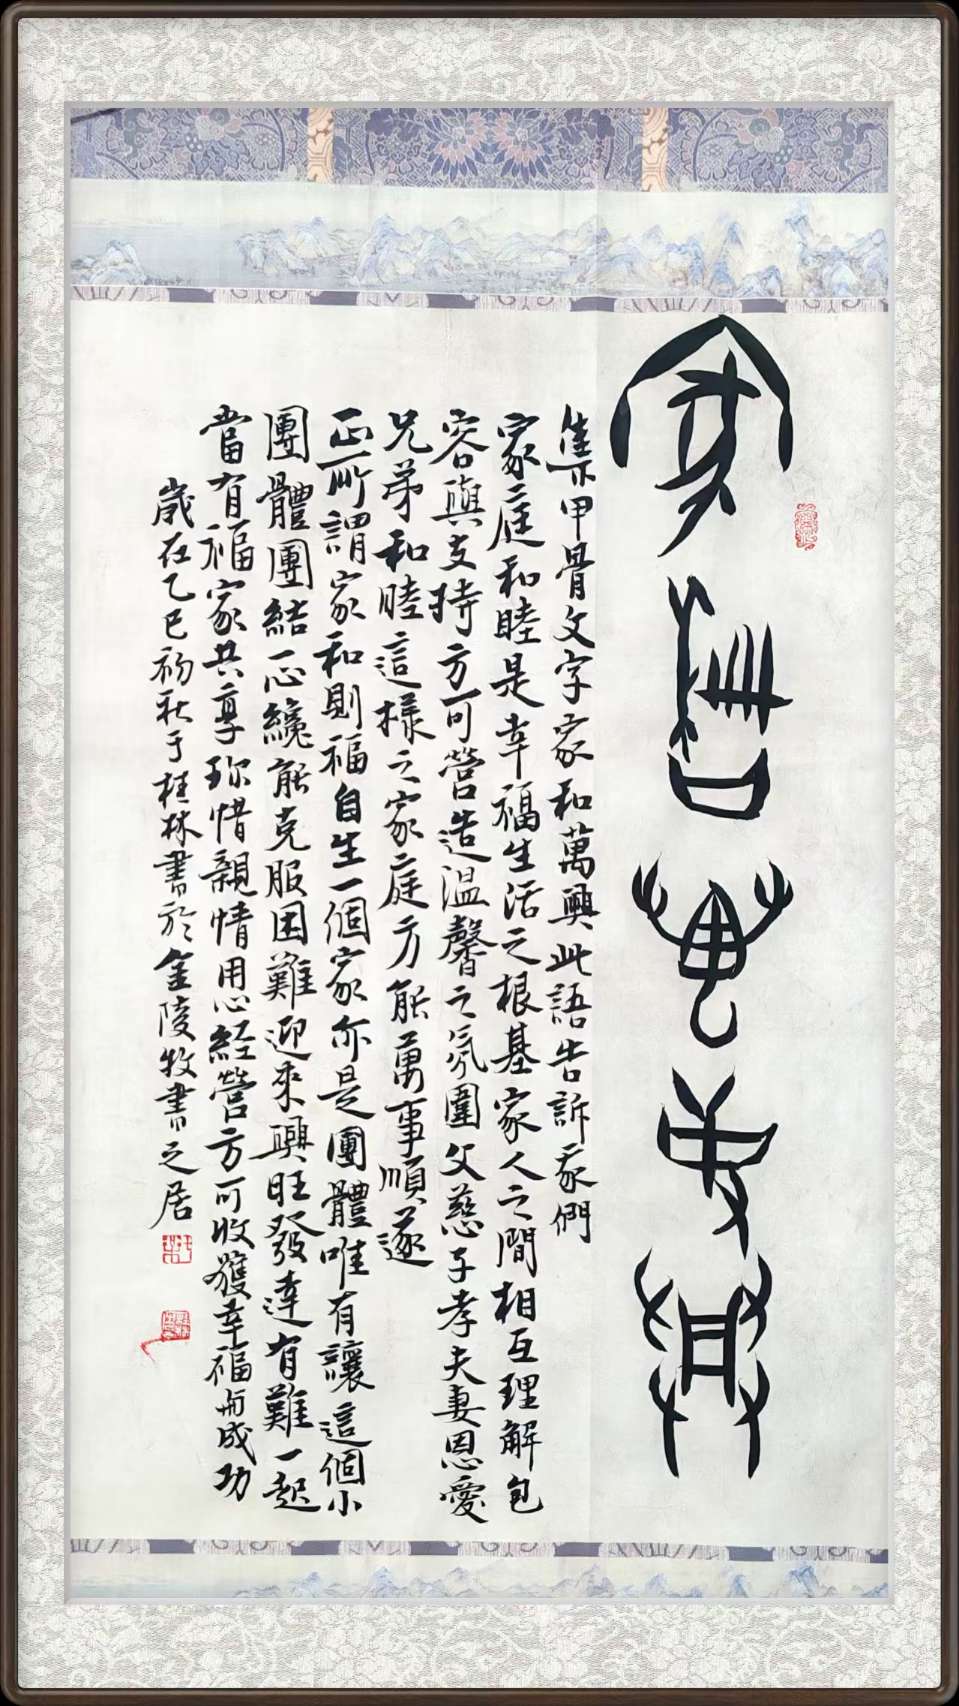 家和萬事興
集甲骨文字家和萬興此語告訴我們
家庭和睦是幸福生活之根基家人之間相互理解包
容與支持方可營造溫馨之氛圍父慈子孝夫妻恩愛
兄弟和睦這樣之家庭方能萬事順遂
正所謂家和則福自生一個家亦是團體唯有讓這個小
團體團結一心纔能克服困難迎來興旺發達有難一起
當有福家共享珍惜親情用心經營方可收獲幸福与成功
歲在乙巳初秋于桂林書於金陵牧書之居